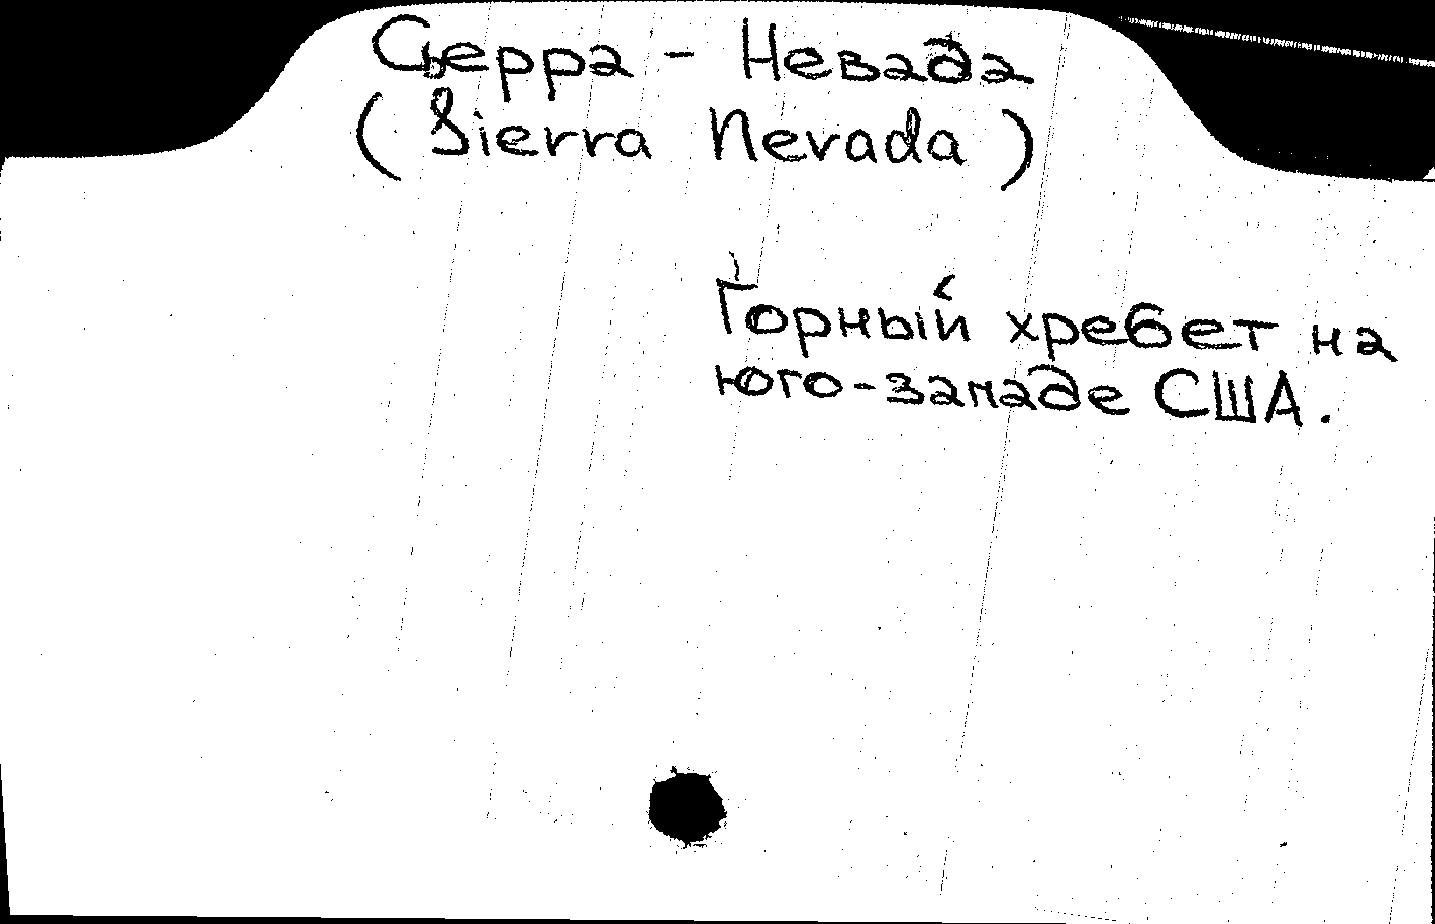 Сьерра - Невада
(Sierra Nevada)
Горный хребет на
юго-западе США.